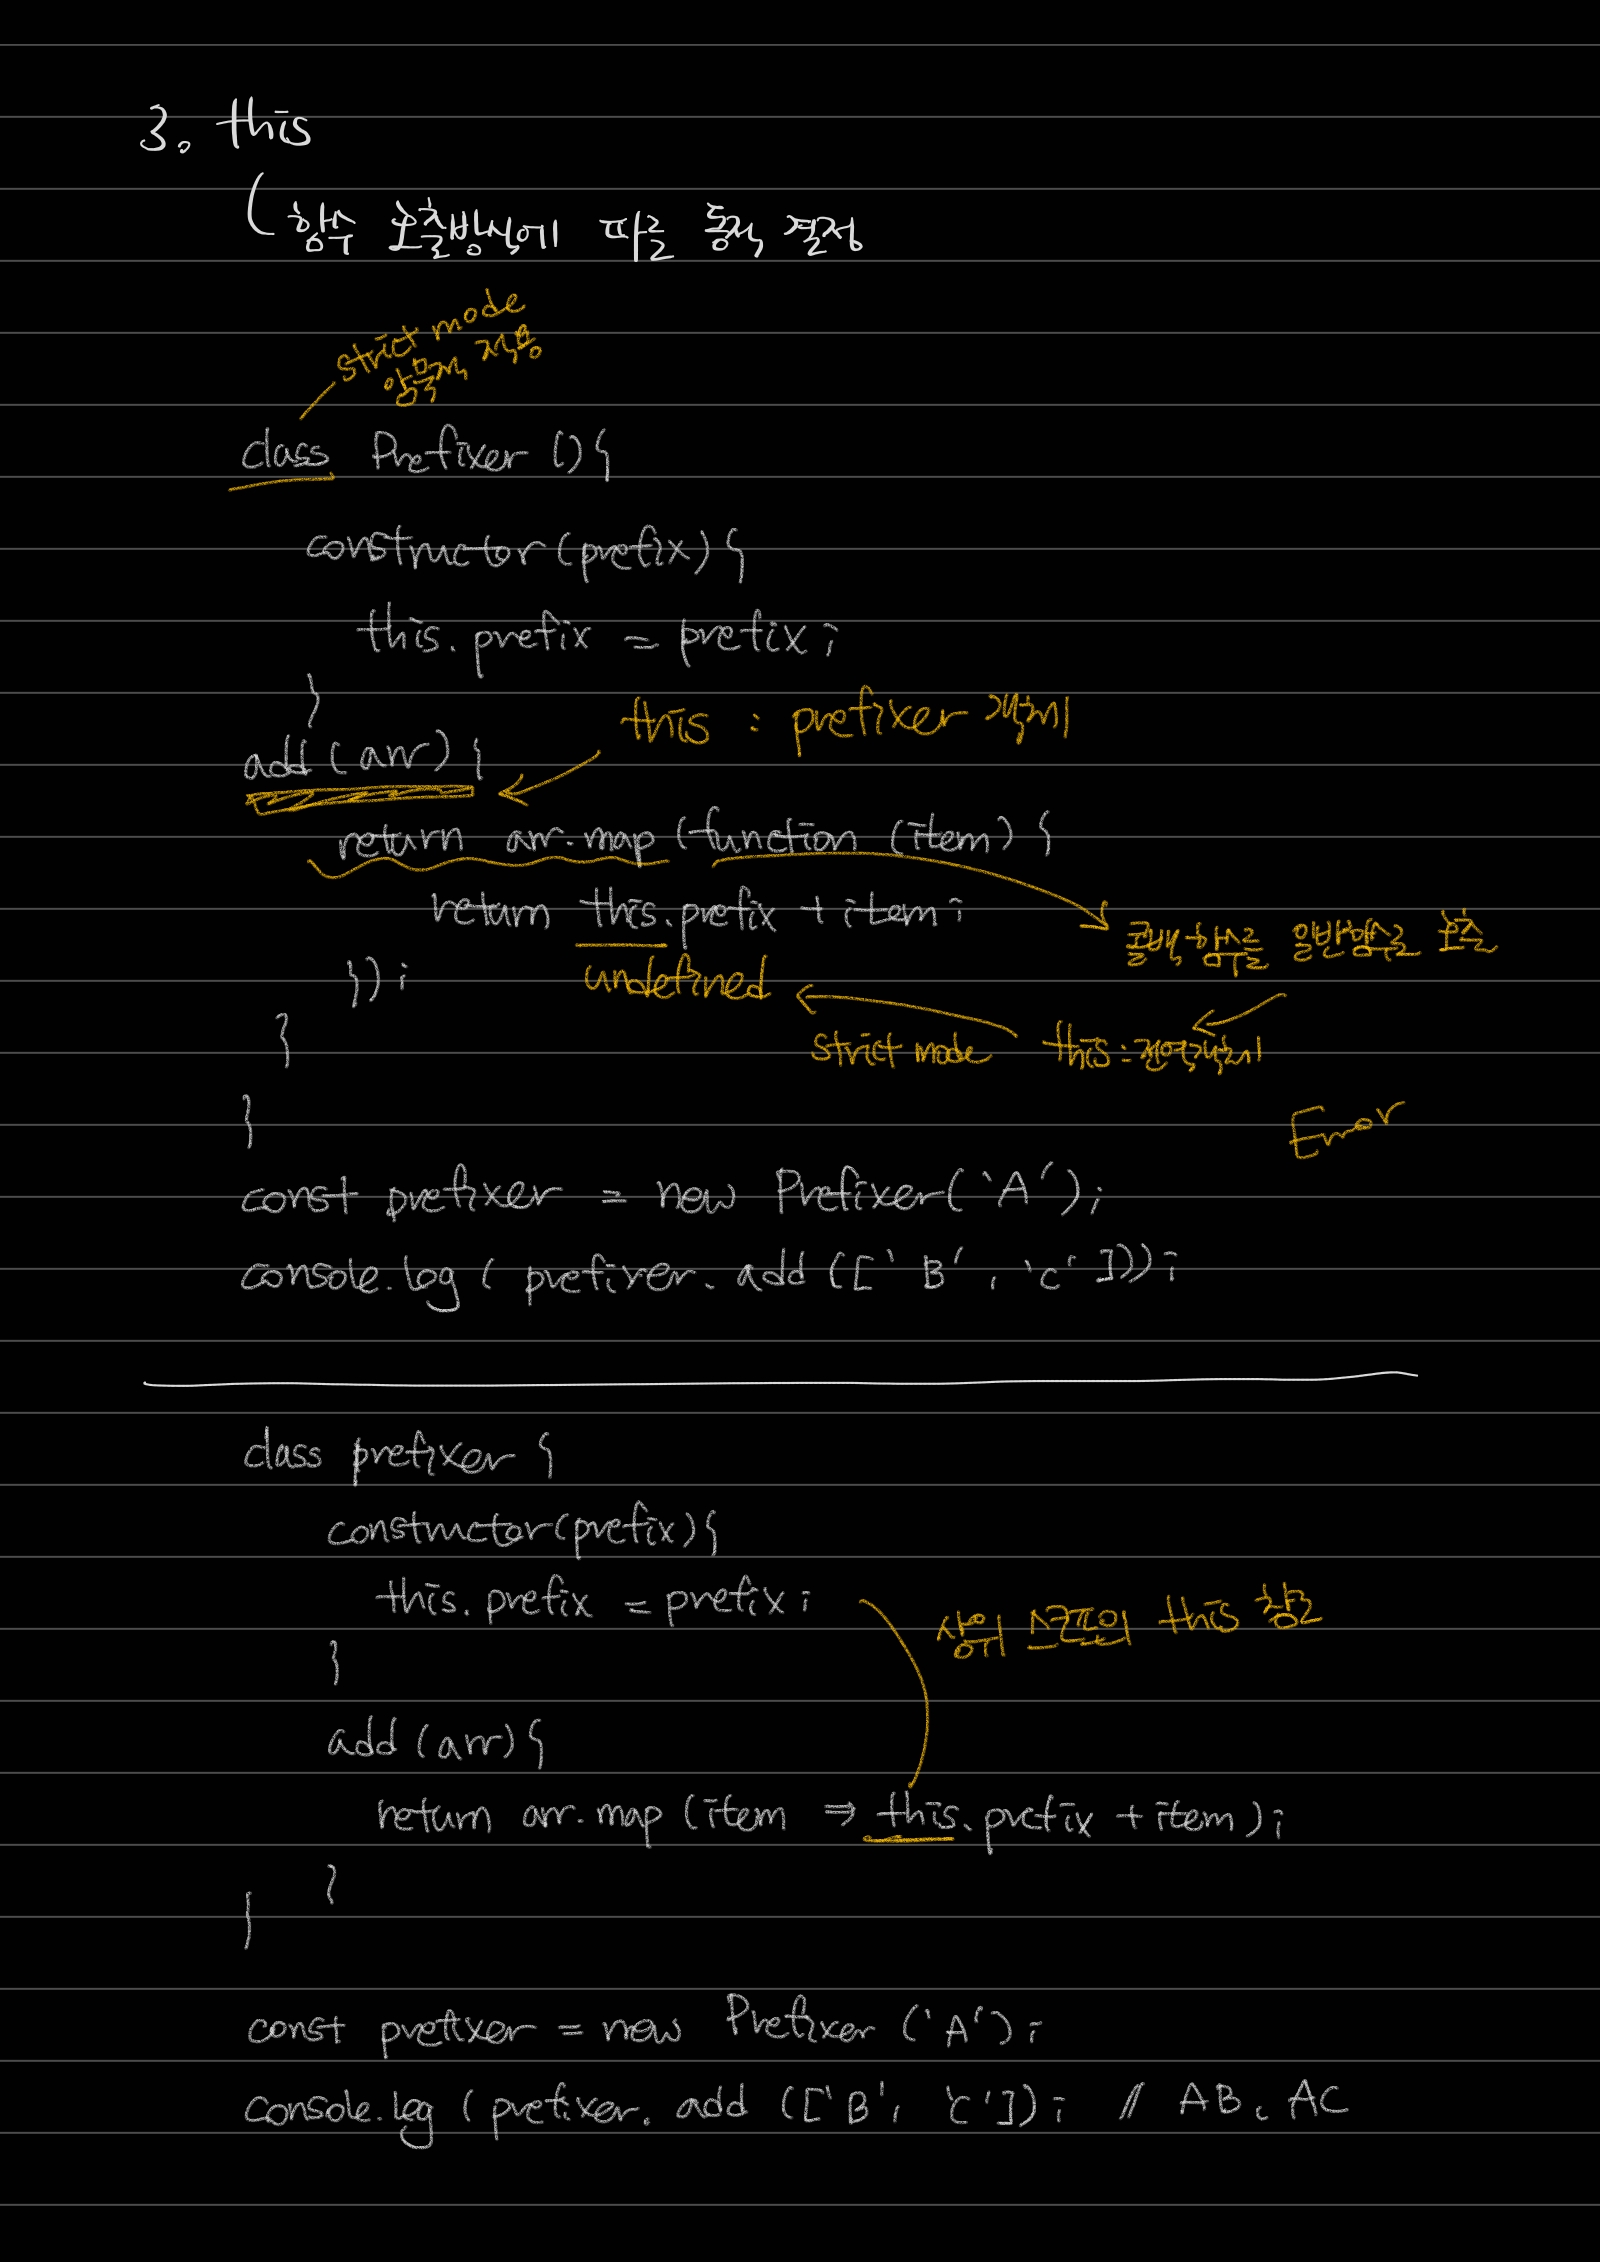 3. this
함수 호출방식에 따를 동적 결정
strict mode
암묵적 적용
class Prefixer () {
constructor (prefix) {
this.prefix = prefix;
}
this : prefixer 객체
add (arr) {
return arr.map (function (item) {
return this.prefix + item;
콜백 함수를 일반함수로 호출
});
undefined
strict mode
this : 전역객체
}
}
Error
const prefixer = new Prefixer('A');
console.log ( prefixer. add (['B', 'C']));
class prefixer {
constructor(prefix){
this.prefix = prefix;
상위 스코프의 this 참조
}
add (arr) {
return arr.map (item ⇒ this.prefix + item);
}
}
const prefixer = new Prefixer ('A');
console.log (prefixer. add (['B', 'C']); // AB, AC